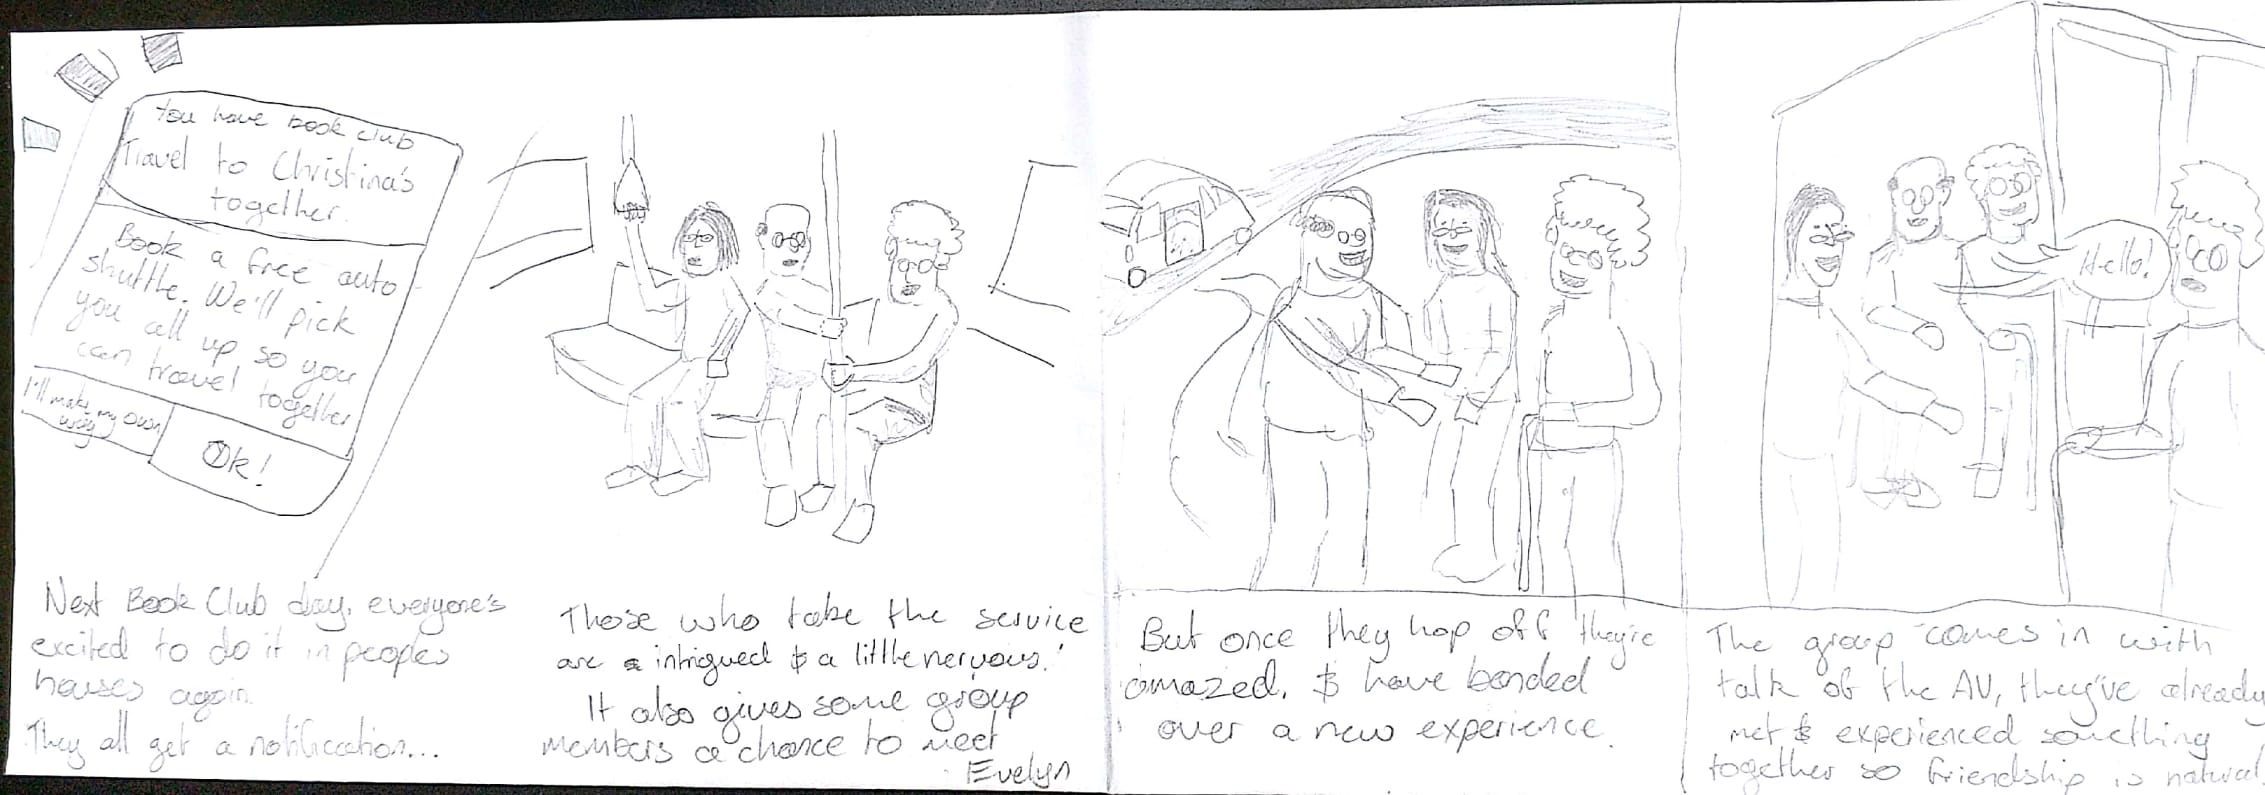 You have book club
Travel to Christina's
together.
Book a free auto-
shuttle. We'll pick
you all up so you
can travel together
I'll make my own
way
Ok!
Next Book Club day, everyone's
excited to do it in peoples
houses again.
They all get a notification...
Those who take the service
are intrigued & a little nervous.
It also gives some group
members a chance to meet
Evelyn
But once they hop off they're
amazed. & have bonded
over a new experience.
Hello!
The group comes in with
talk of the AV, they've already
met & experienced something
together so friendship is natural.